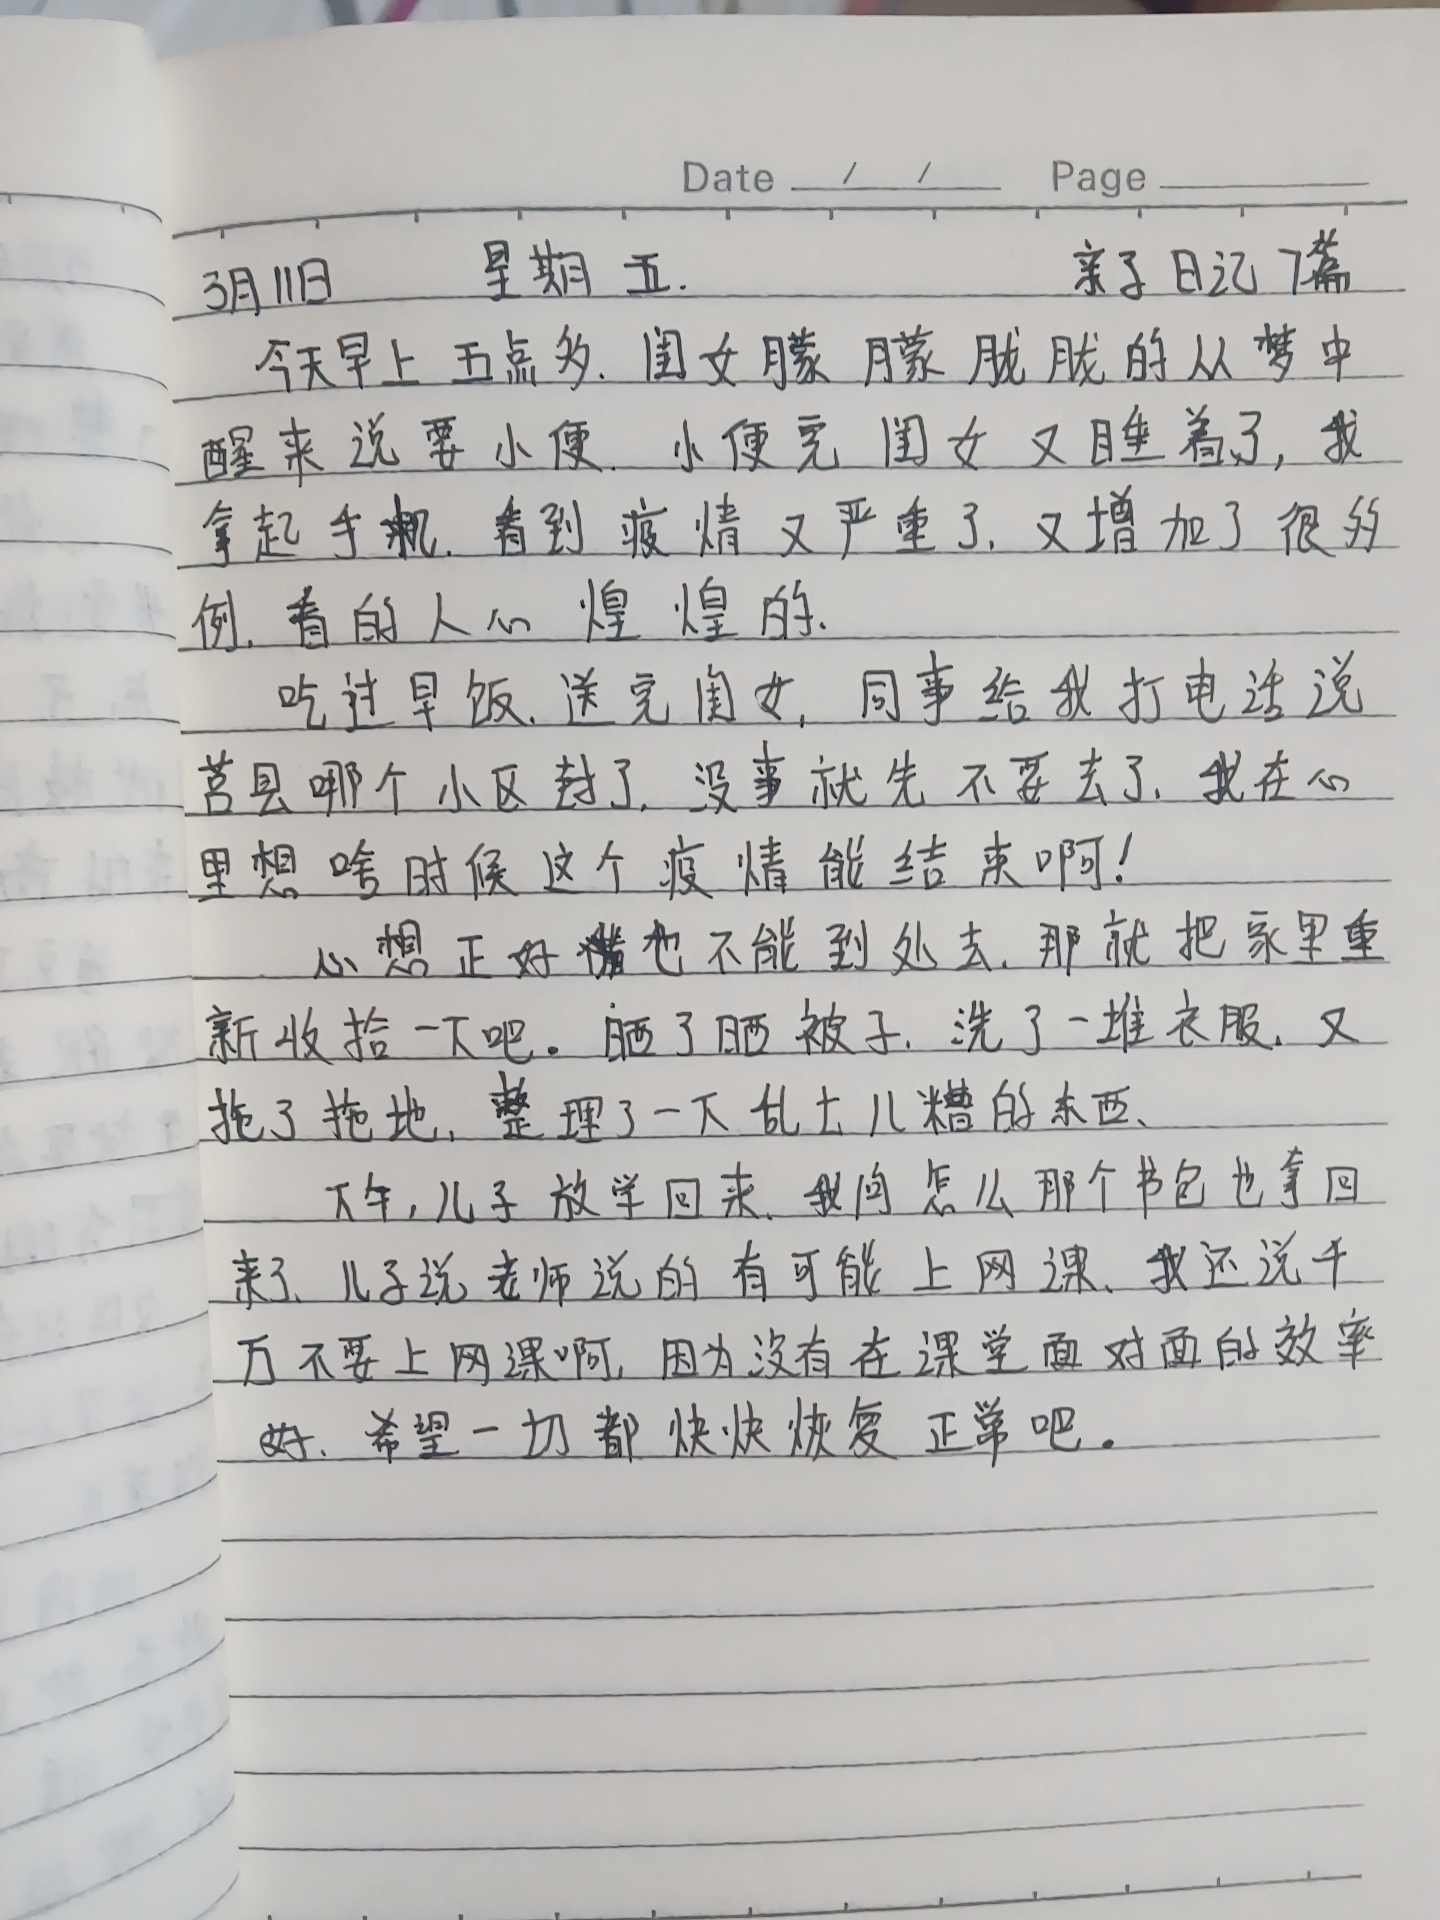 Date / / Page
3月11日 星期五. 亲子日记 7篇
今天早上五点多.闺女朦朦胧胧的从梦中
醒来说要小便.小便完闺女又睡着了,我
拿起手机.看到疫情又严重了.又增加了很多
例.看的人心煌煌的.
吃过早饭.送完闺女,同事给我打电话说
莒县哪个小区封了.没事就先不要去了.我在心
里想啥时候这个疫情能结束啊!
心想正好也不能到处去.那就把家里重
新收拾一下吧。晒了晒被子.洗了一堆衣服.又
拖了拖地,整理了一下乱七八糟的东西、
下午,儿子放学回来.我问怎么那个书包也拿回
来了.儿子说老师说的有可能上网课、我还说千
万不要上网课啊,因为没有在课堂面对面的效率
好.希望一切都快快恢复正常吧。